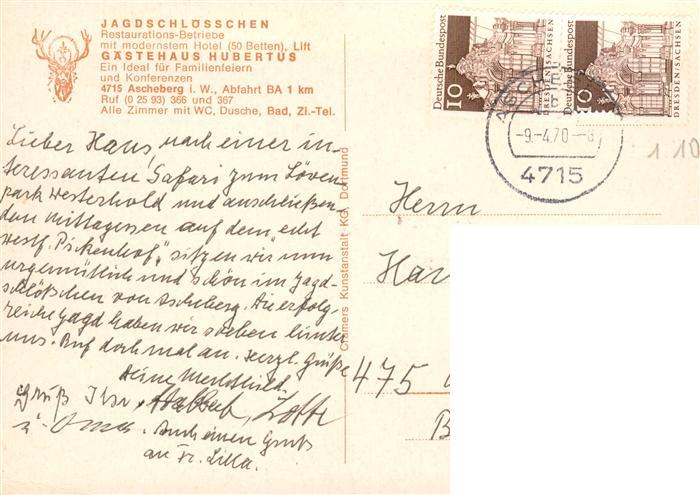 JAGDSCHLÖSSCHEN
Restaurations-Betriebe
mit modernstem Hotel (50 Betten), Lift
GÄSTEHAUS HUBERTUS
Ein Ideal für Familienfeiern
und Konferenzen
4715 Ascheberg i. W., Abfahrt BA 1 km
Ruf (0 25 93) 366 und 367
Alle Zimmer mit WC, Dusche, Bad, Zi.-Tel.
Lieber Hans, nach einer in-
teressanten Safari zum Löven
park Westerhold und anschließen-
dem Mittagessen auf dem echt
westf. "Pickenhof" sitzen wir nun
urgemütlich und schön im Jagd-
schlößchen von Ascheberg. Die erfolg-
reiche Jagd haben wir soeben hinter
uns. Ruf doch mal an. Herzl. Grüße
Deine
Gruß Ihr
u. Oma. Auch einen Gruß
an Fr. Lilla.
Cramers Kunstanstalt KG, Dortmund
Deutsche Bundespost
10
DRESDEN/SACHSEN
Deutsche Bundespost
10
DRESDEN/SACHSEN
-9.-4.70.-8
4715
1 10
Herrn
Han
475
B